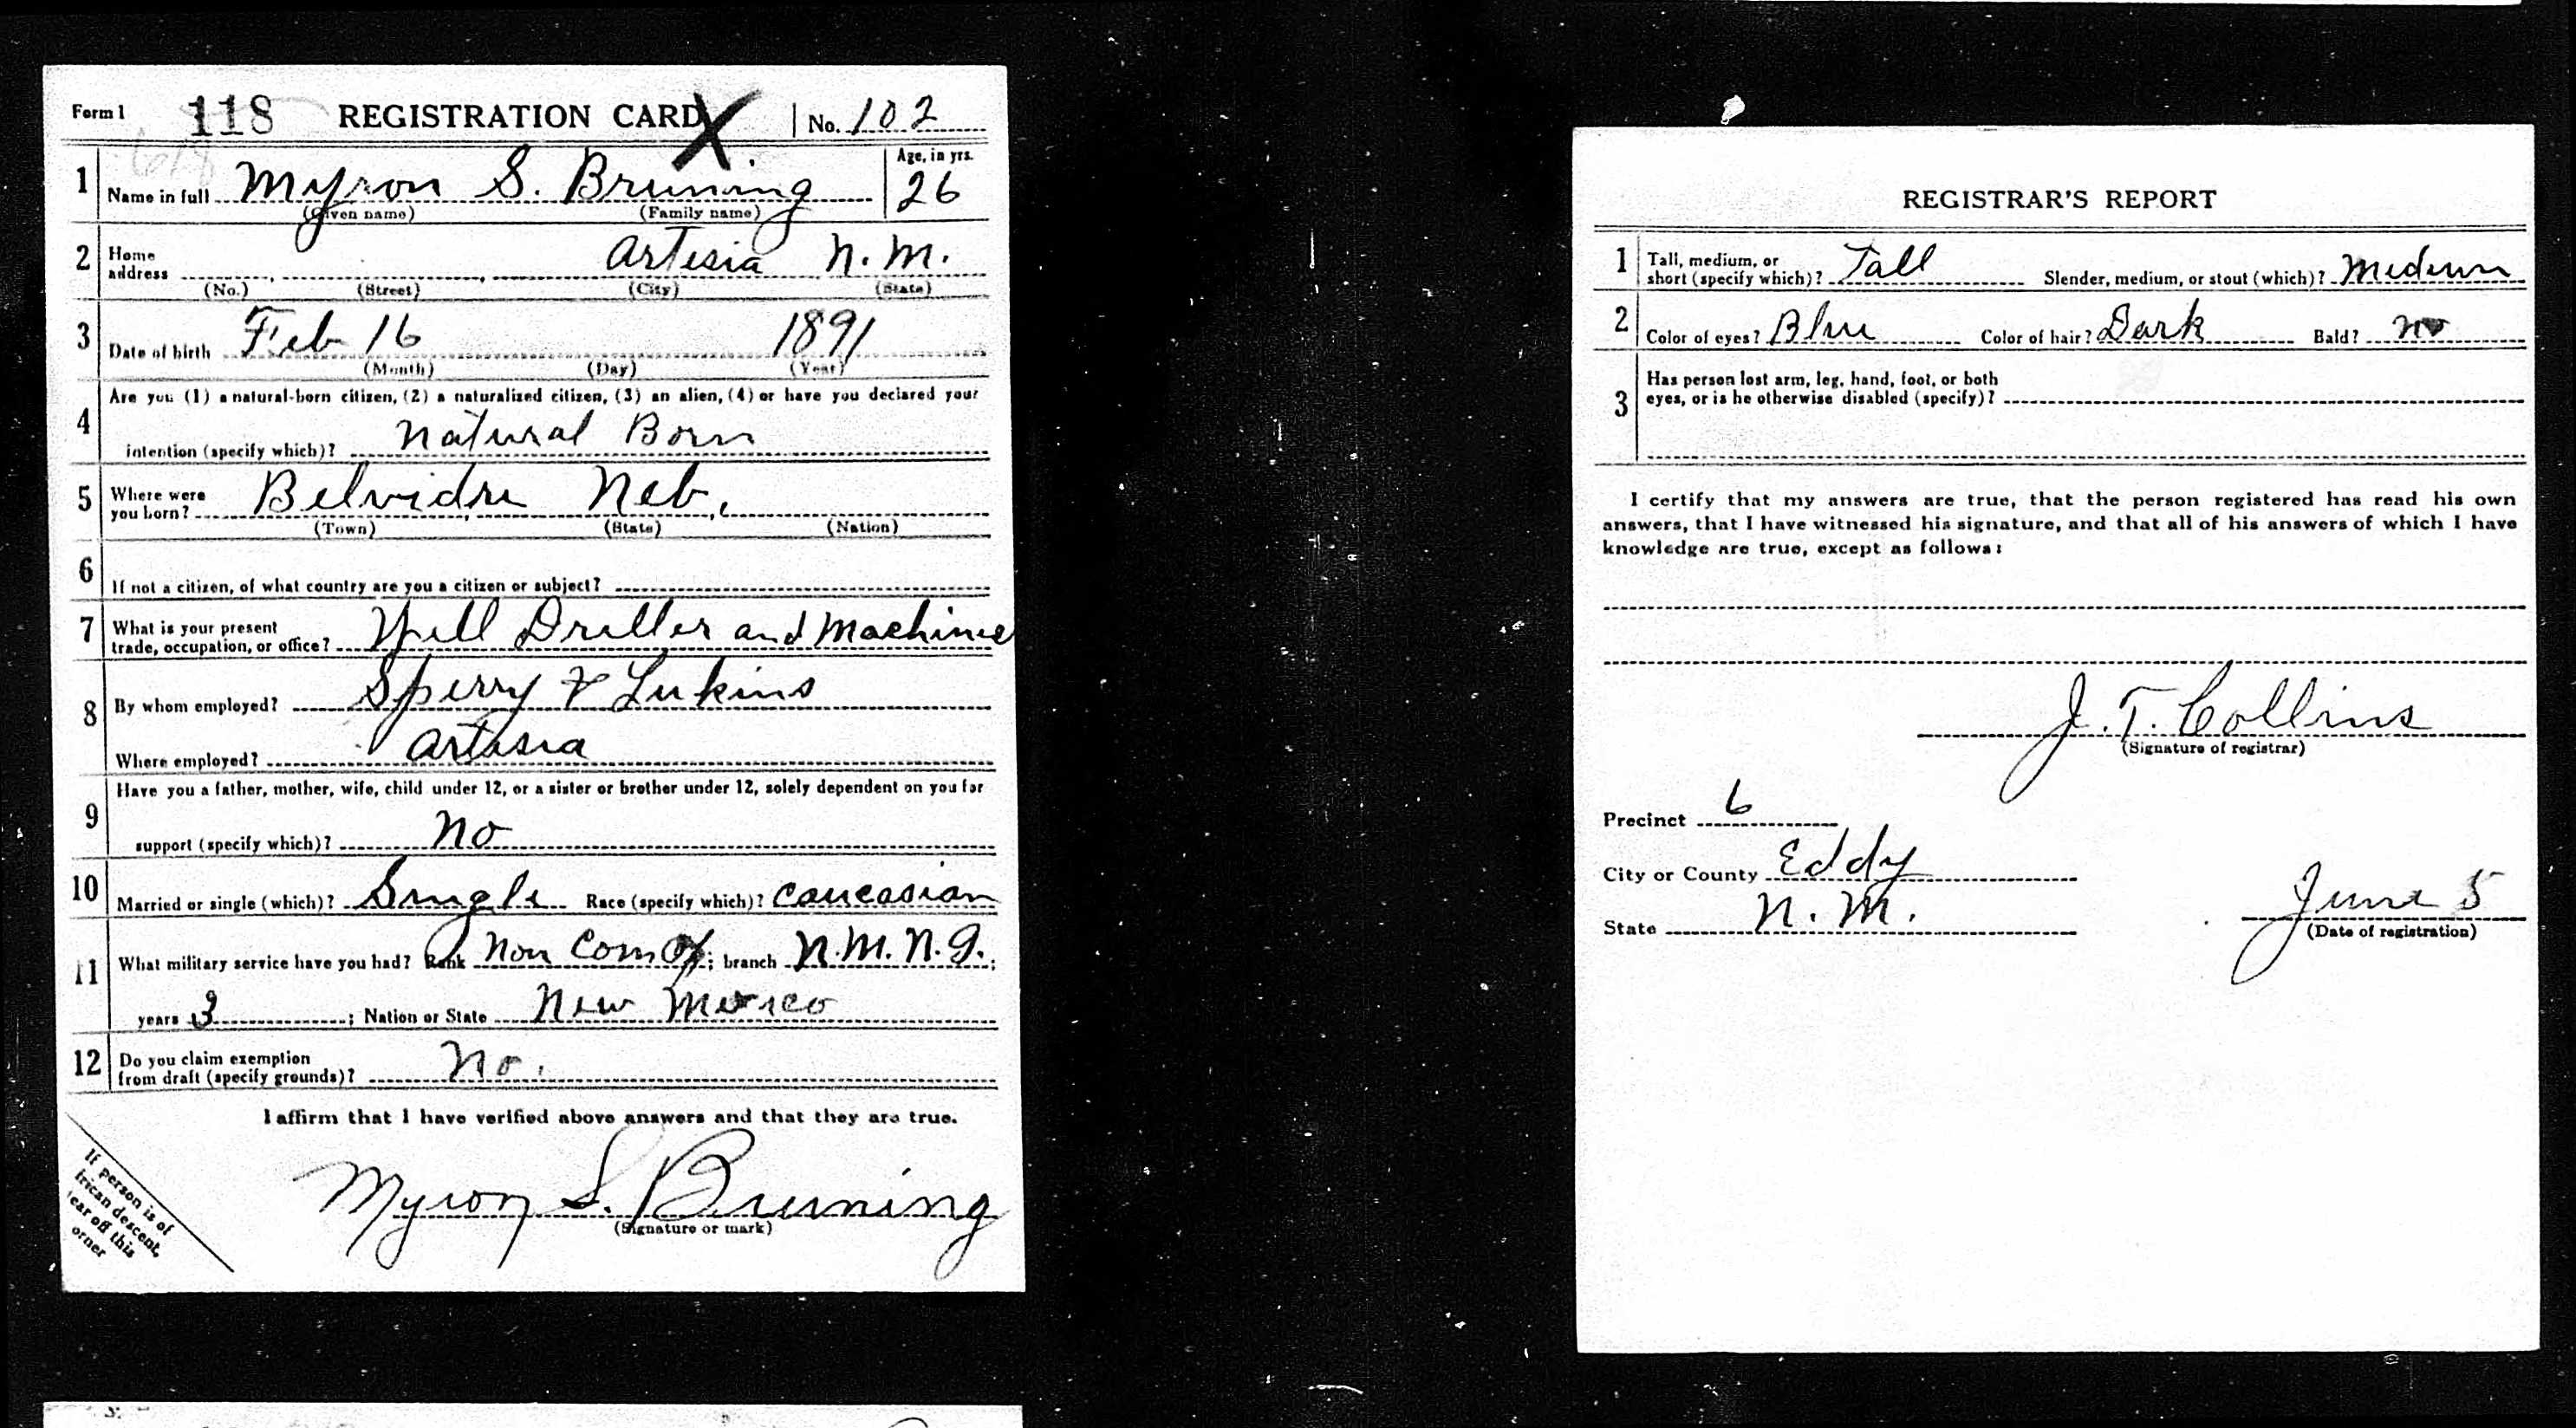 Form 1 118 REGISTRATION CARD X No. 102
1 Name in full Myron S. Bruning Age, in yrs. 26
(Given name) (Family name)
2 Home address Artesia N.M.
(No.) (Street) (City) (State)
3 Date of birth Feb 16 1891
(Month) (Day) (Year)
4 Are you (1) a natural-born citizen, (2) a naturalized citizen, (3) an alien, (4) or have you declared your
intention (specify which)? Natural Born
5 Where were you born? Belvidre Neb.
(Town) (State) (Nation)
6 If not a citizen, of what country are you a citizen or subject?
7 What is your present trade, occupation, or office? Well Driller and Machine
8 By whom employed? Sperry & Lukins
Where employed? Artesia
9 Have you a father, mother, wife, child under 12, or a sister or brother under 12, solely dependent on you for
support (specify which)? No
10 Married or single (which)? Single Race (specify which)? Caucasian
11 What military service have you had? Rank Non Com Of; branch N.M.N.G.;
years 3; Nation or State New Mexico
12 Do you claim exemption from draft (specify grounds)? No.
I affirm that I have verified above answers and that they are true.
Myron S. Bruning
(Signature or mark)
If person is of
frican descent,
ear off this
orner
REGISTRAR'S REPORT
1 Tall, medium, or short (specify which)? Tall Slender, medium, or stout (which)? Medium
2 Color of eyes? Blue Color of hair? Dark Bald? No
3 Has person lost arm, leg, hand, foot, or both
eyes, or is he otherwise disabled (specify)?
I certify that my answers are true, that the person registered has read his own
answers, that I have witnessed his signature, and that all of his answers of which I have
knowledge are true, except as follows:
J. T. Collins
(Signature of registrar)
Precinct 6
City or County Eddy
State N.M.
June 5
(Date of registration)